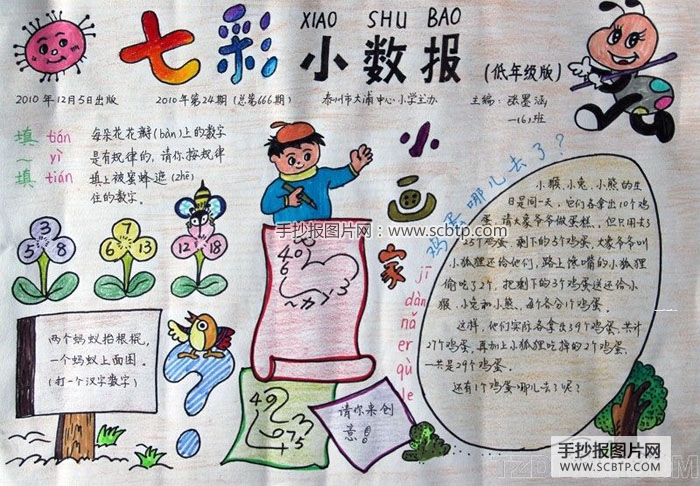 XIAO SHU BAO
七彩小数报
(低年级版)
2010年12月5日出版
2010年第24期(总第666期)
泰州市大浦中心小学主办
主编:张墨涵
一(6)班
填 tián
一 yì
填 tián
每朵花花瓣(bàn)上的数字
是有规律的,请你按规律
填上被蜜蜂遮(zhē)
住的数字。
3 5 8
7 6 13
12 18
两个蚂蚁抬根棍,
一个蚂蚁上面困。
(打一个汉字数字)
?
小画家
手抄报图片网:www.scbtp.com
406
3
40
2
75
请你来创
意!
鸡蛋哪儿去了?
jī dàn nǎ er qù le
小猴、小兔、小熊的生
日是同一天,它们各拿出10个鸡
蛋,请大象爷爷做蛋糕,但只用去
25个鸡蛋,剩下的5个鸡蛋,大象爷爷叫
小狐狸还给他们,路上馋嘴的小狐狸
偷吃了2个,把剩下的3个鸡蛋送还给小
猴、小兔和小熊,每个各分1个鸡蛋。
这样,他们实际各拿出了9个鸡蛋,共计
27个鸡蛋,再加上小狐狸吃掉的2个鸡蛋,
一共是29个鸡蛋。
还有1个鸡蛋哪儿去了呢?
手抄报图片网
WWW.SCBTP.COM